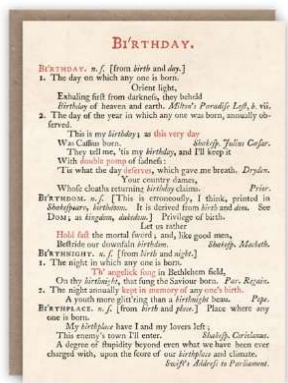 BI'RTHDAY.
BI'RTHDAY. n. ſ. [from birth and day.]
1. The day on which any one is born.
Orient light,
Exhaling firſt from darkneſs, they beheld
Birthday of heaven and earth. Milton's Paradiſe Loſt, b. vii.
2. The day of the year in which any one was born, annually ob-
ſerved.
This is my birthday; as this very day
Was Caſſius born. Shakeſp. Julius Cæſar.
They tell me, 'tis my birthday, and I'll keep it
With double pomp of ſadneſs:
'Tis what the day deſerves, which gave me breath. Dryden.
Your country dames,
Whoſe cloaths returning birthday claims. Prior.
BI'RTHDOM. n. ſ. [This is erroneouſly, I think, printed in
Shakeſpeare, birthdoom. It is derived from birth and dom. See
DOM; as kingdom, dukedom.] Privilege of birth.
Let us rather
Hold faſt the mortal ſword; and, like good men,
Beſtride our downfaln birthdom. Shakeſp. Macbeth.
BI'RTHNIGHT. n. ſ. [from birth and night.]
1. The night in which any one is born.
Th' angelick ſong in Bethlehem field,
On thy birthnight, that ſung the Saviour born. Par. Regain.
2. The night annually kept in memory of any one's birth.
A youth more glitt'ring than a birthnight beau. Pope.
BI'RTHPLACE. n. ſ. [from birth and place.] Place where any
one is born.
My birthplace have I and my lovers left;
This enemy's town I'll enter. Shakeſp. Coriolanus.
A degree of ſtupidity beyond even what we have been ever
charged with, upon the ſcore of our birthplace and climate.
Swift's Addreſs to Parliament.